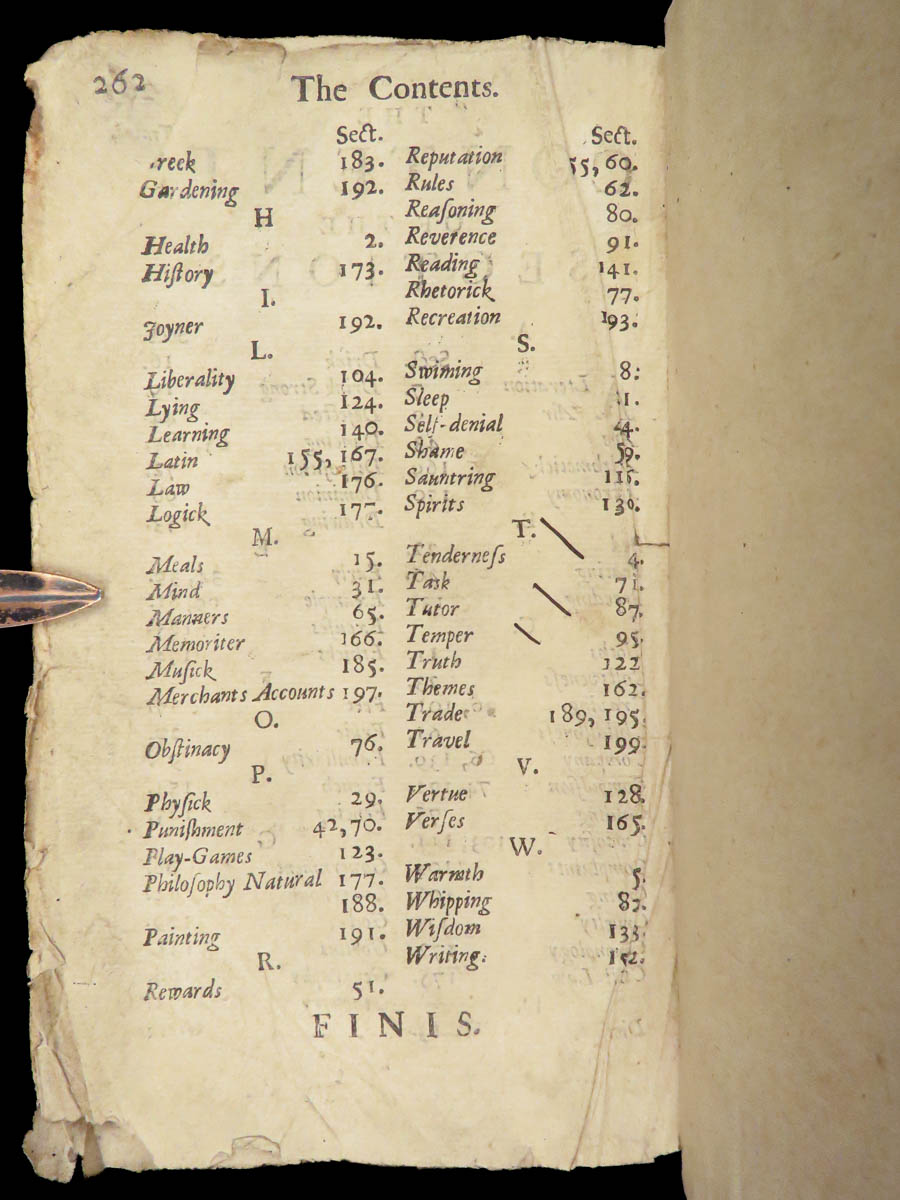 262
The Contents.
Sect.
reek 183.
Gardening 192.
H
Health 2.
Hiſtory 173.
I.
Joyner 192.
L.
Liberality 104.
Lying 124.
Learning 140.
Latin 155, 167.
Law 176.
Logick 177.
M.
Meals 15.
Mind 31.
Manners 65.
Memoriter 166.
Muſick 185.
Merchants Accounts 197.
O.
Obſtinacy 76.
P.
Phyſick 29.
Puniſhment 42, 70.
Play-Games 123.
Philoſophy Natural 177.
188.
Painting 191.
R.
Rewards 51.
Sect.
Reputation 55, 60.
Rules 62.
Reaſoning 80.
Reverence 91.
Reading 141.
Rhetorick 77.
Recreation 193.
S.
Swiming 8.
Sleep
Self-denial 4.
Shame 59.
Sauntring
Spirits 130.
T.
Tenderneſs 4.
Task 71.
Tutor 87.
Temper 95.
Truth 122
Themes 162.
Trade 189, 195.
Travel 199.
V.
Vertue 128.
Verſes 165.
W.
Warmth 5.
Whipping 87.
Wiſdom 133.
Writing. 152.
FINIS.